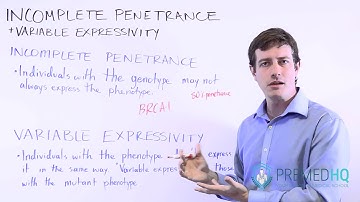 INCOMPLETE PENETRANCE
+ VARIABLE EXPRESSIVITY
INCOMPLETE PENETRANCE
• Individuals with the genotype may not
always express the phenotype.
50% penetrance
BRCA1
VARIABLE EXPRESSIVITY
PREMEDHQ
• Individuals with the phenotype express
it in the same way. "Variable express those
with the mutant phenotype